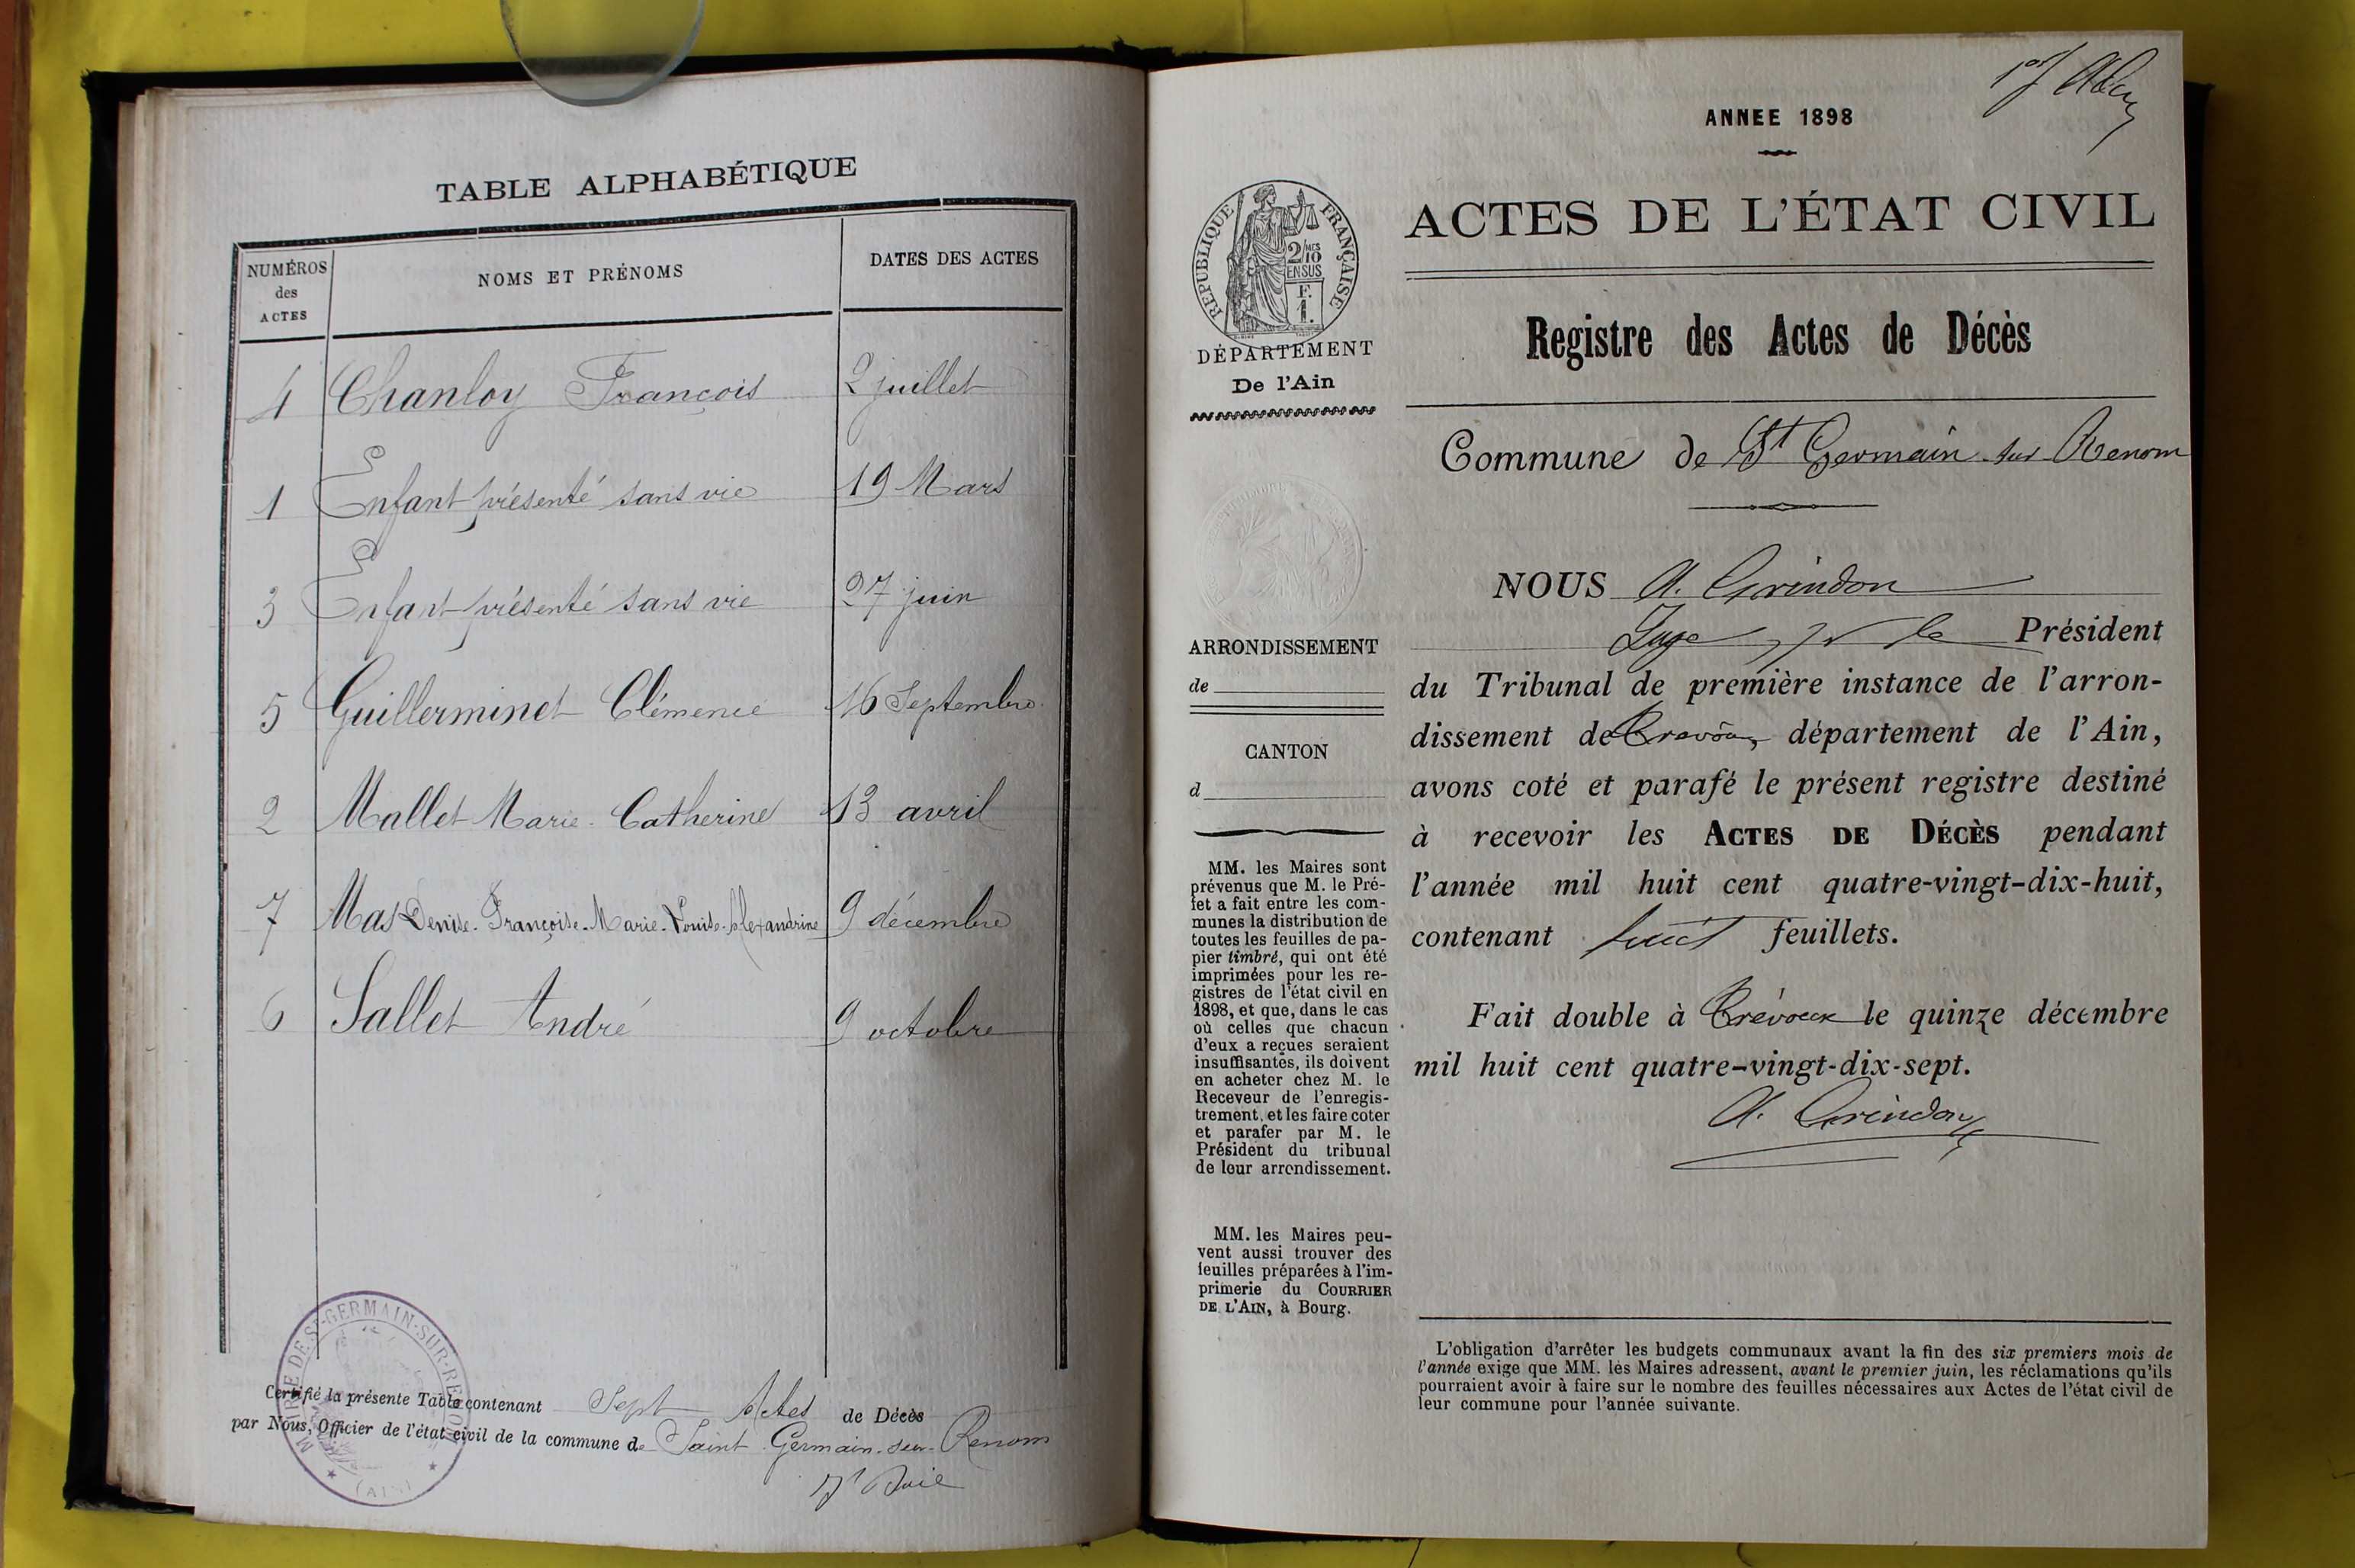 TABLE ALPHABÉTIQUE
NUMÉROS des ACTES NOMS ET PRÉNOMS DATES DES ACTES
4 Chanloy François 2 juillet
1 Enfant présenté sans vie 19 Mars
3 Enfant présenté sans vie 27 juin
5 Guillerminet Clémence 16 Septembre
2 Mallet Marie-Catherine 13 avril
7 Mas Denise-Françoise-Marie-Louise-Alexandrine 9 décembre
6 Sallet André 9 octobre
Certifié la présente Table contenant Sept Actes de Décès
par Nous, Officier de l'état civil de la commune de Saint Germain-sur-Renom
MAIRIE DE St-GERMAIN-SUR-RENOM
(AIN)
ANNEE 1898
ACTES DE L'ÉTAT CIVIL
RÉPUBLIQUE FRANÇAISE
2/10 MES
EN SUS
F.
1.
DÉPARTEMENT
De l'Ain
Registre des Actes de Décès
Commune de St Germain sur Renom
NOUS A. Grindon
Juge le Président
du Tribunal de première instance de l'arron-
dissement de Trévoux, département de l'Ain,
avons coté et parafé le présent registre destiné
à recevoir les ACTES DE DÉCÈS pendant
l'année mil huit cent quatre-vingt-dix-huit,
contenant huit feuillets.
Fait double à Trévoux le quinze décembre
mil huit cent quatre-vingt-dix-sept.
A. Grindon
ARRONDISSEMENT
de
CANTON
d
MM. les Maires sont
prévenus que M. le Pré-
fet a fait entre les com-
munes la distribution de
toutes les feuilles de pa-
pier timbré, qui ont été
imprimées pour les re-
gistres de l'état civil en
1898, et que, dans le cas
où celles que chacun
d'eux a reçues seraient
insuffisantes, ils doivent
en acheter chez M. le
Receveur de l'enregis-
trement, et les faire coter
et parafer par M. le
Président du tribunal
de leur arrondissement.
MM. les Maires peu-
vent aussi trouver des
feuilles préparées à l'im-
primerie du COURRIER
DE L'AIN, à Bourg.
L'obligation d'arrêter les budgets communaux avant la fin des six premiers mois de
l'année exige que MM. les Maires adressent, avant le premier juin, les réclamations qu'ils
pourraient avoir à faire sur le nombre des feuilles nécessaires aux Actes de l'état civil de
leur commune pour l'année suivante.